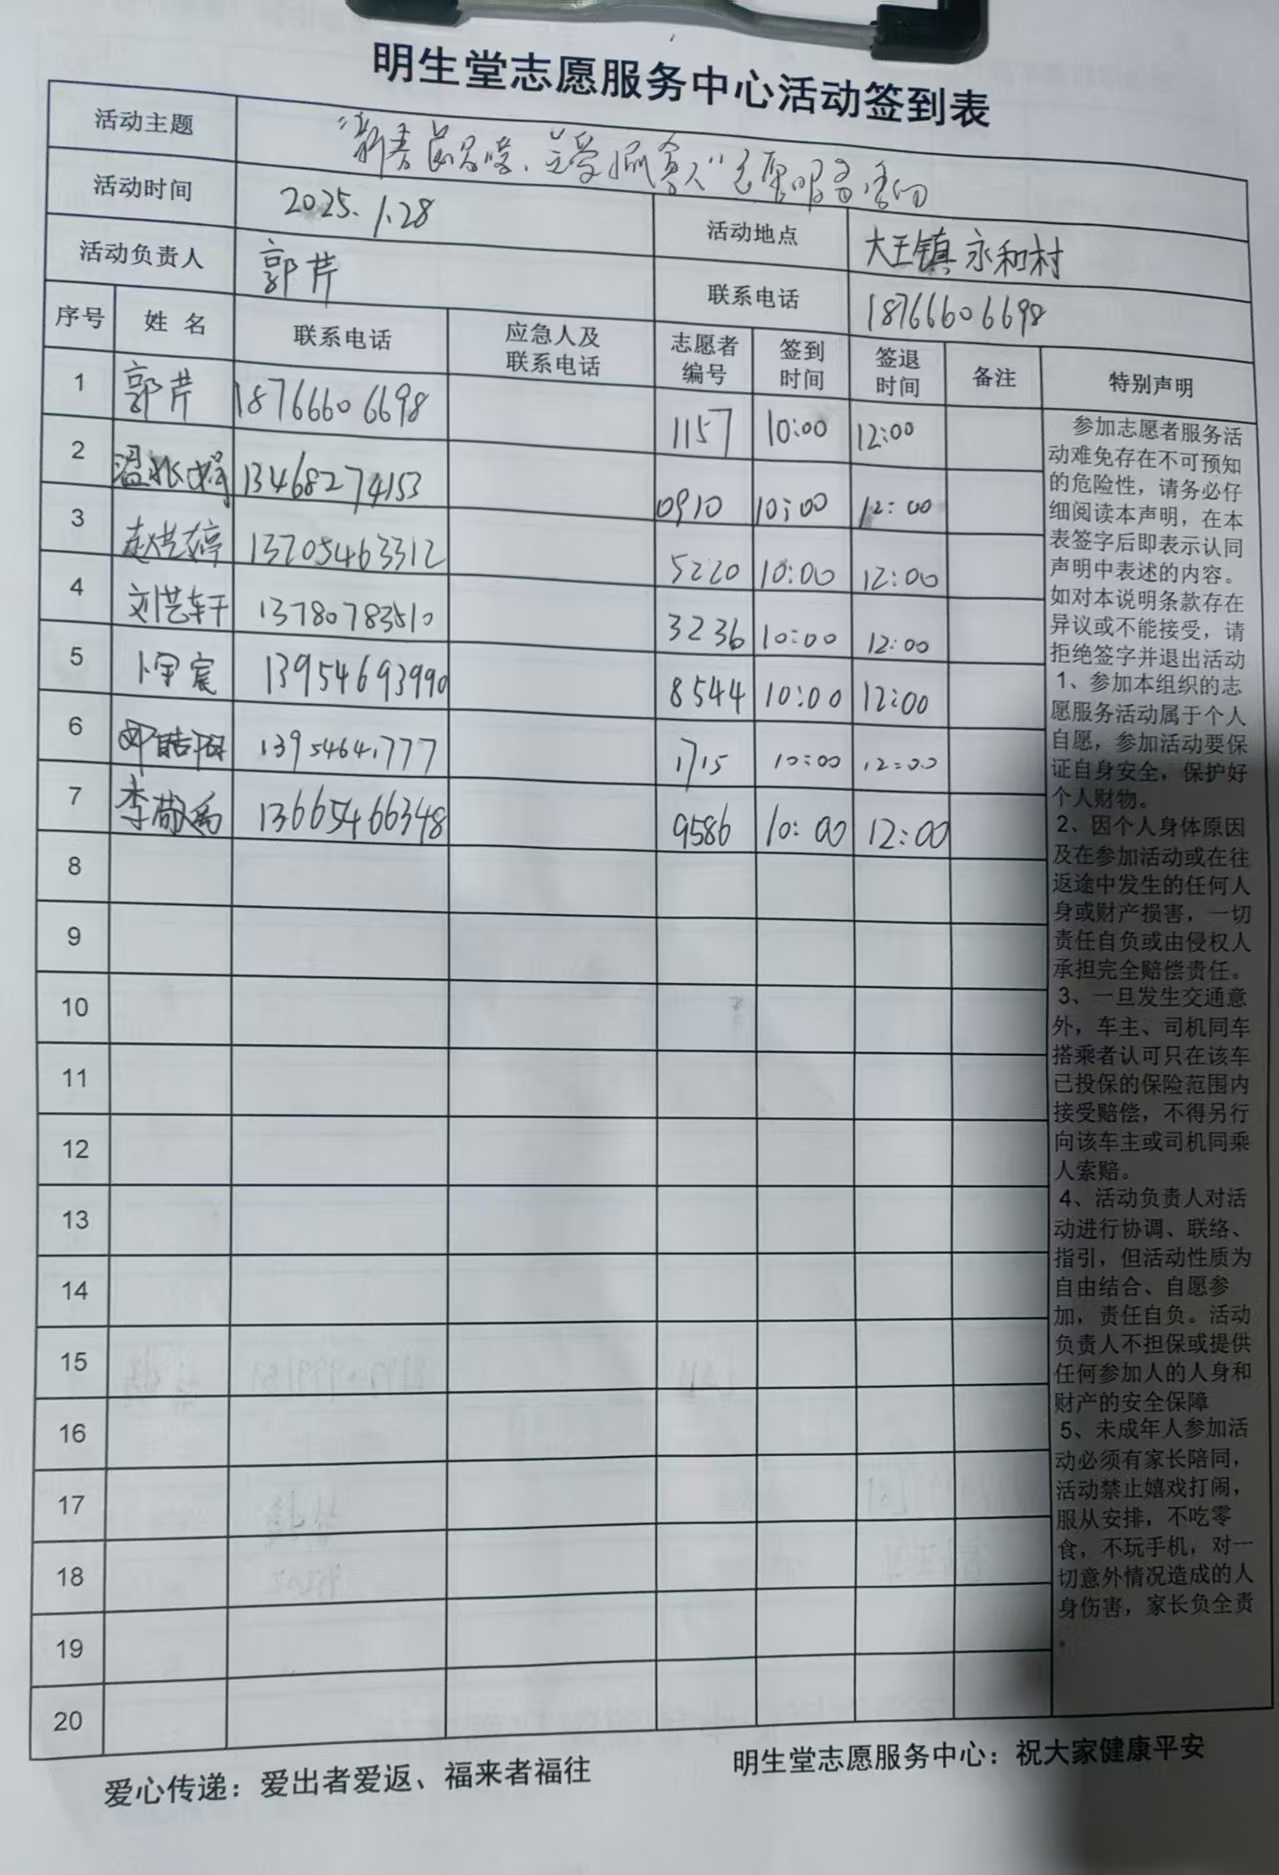 明生堂志愿服务中心活动签到表
活动主题 "新春 志愿服务活动
活动时间 2025.1.28 活动地点 大王镇永和村
活动负责人 郭芹 联系电话 18766606698
序号 姓名 联系电话 应急人及联系电话 志愿者编号 签到时间 签退时间 备注 特别声明
1 郭芹 18766606698 1157 10:00 12:00
2 温 13468274153 0910 10:00 12:00
3 赵 婷 13705463312 5220 10:00 12:00
4 刘艺轩 13780783510 3236 10:00 12:00
5 卜宇宸 13954693990 8544 10:00 12:00
6 邓皓 13954641777 1715 10:00 12:00
7 李 13665466348 9586 10:00 12:00
8
9
10
11
12
13
14
15
16
17
18
19
20
参加志愿者服务活
动难免存在不可预知
的危险性，请务必仔
细阅读本声明，在本
表签字后即表示认同
声明中表述的内容。
如对本说明条款存在
异议或不能接受，请
拒绝签字并退出活动
1、参加本组织的志
愿服务活动属于个人
自愿，参加活动要保
证自身安全，保护好
个人财物。
2、因个人身体原因
及在参加活动或在往
返途中发生的任何人
身或财产损害，一切
责任自负或由侵权人
承担完全赔偿责任。
3、一旦发生交通意
外，车主、司机同车
搭乘者认可只在该车
已投保的保险范围内
接受赔偿，不得另行
向该车主或司机同乘
人索赔。
4、活动负责人对活
动进行协调、联络、
指引，但活动性质为
自由结合、自愿参
加，责任自负。活动
负责人不担保或提供
任何参加人的人身和
财产的安全保障
5、未成年人参加活
动必须有家长陪同，
活动禁止嬉戏打闹，
服从安排，不吃零
食，不玩手机，对一
切意外情况造成的人
身伤害，家长负全责
。
爱心传递：爱出者爱返、福来者福往 明生堂志愿服务中心：祝大家健康平安